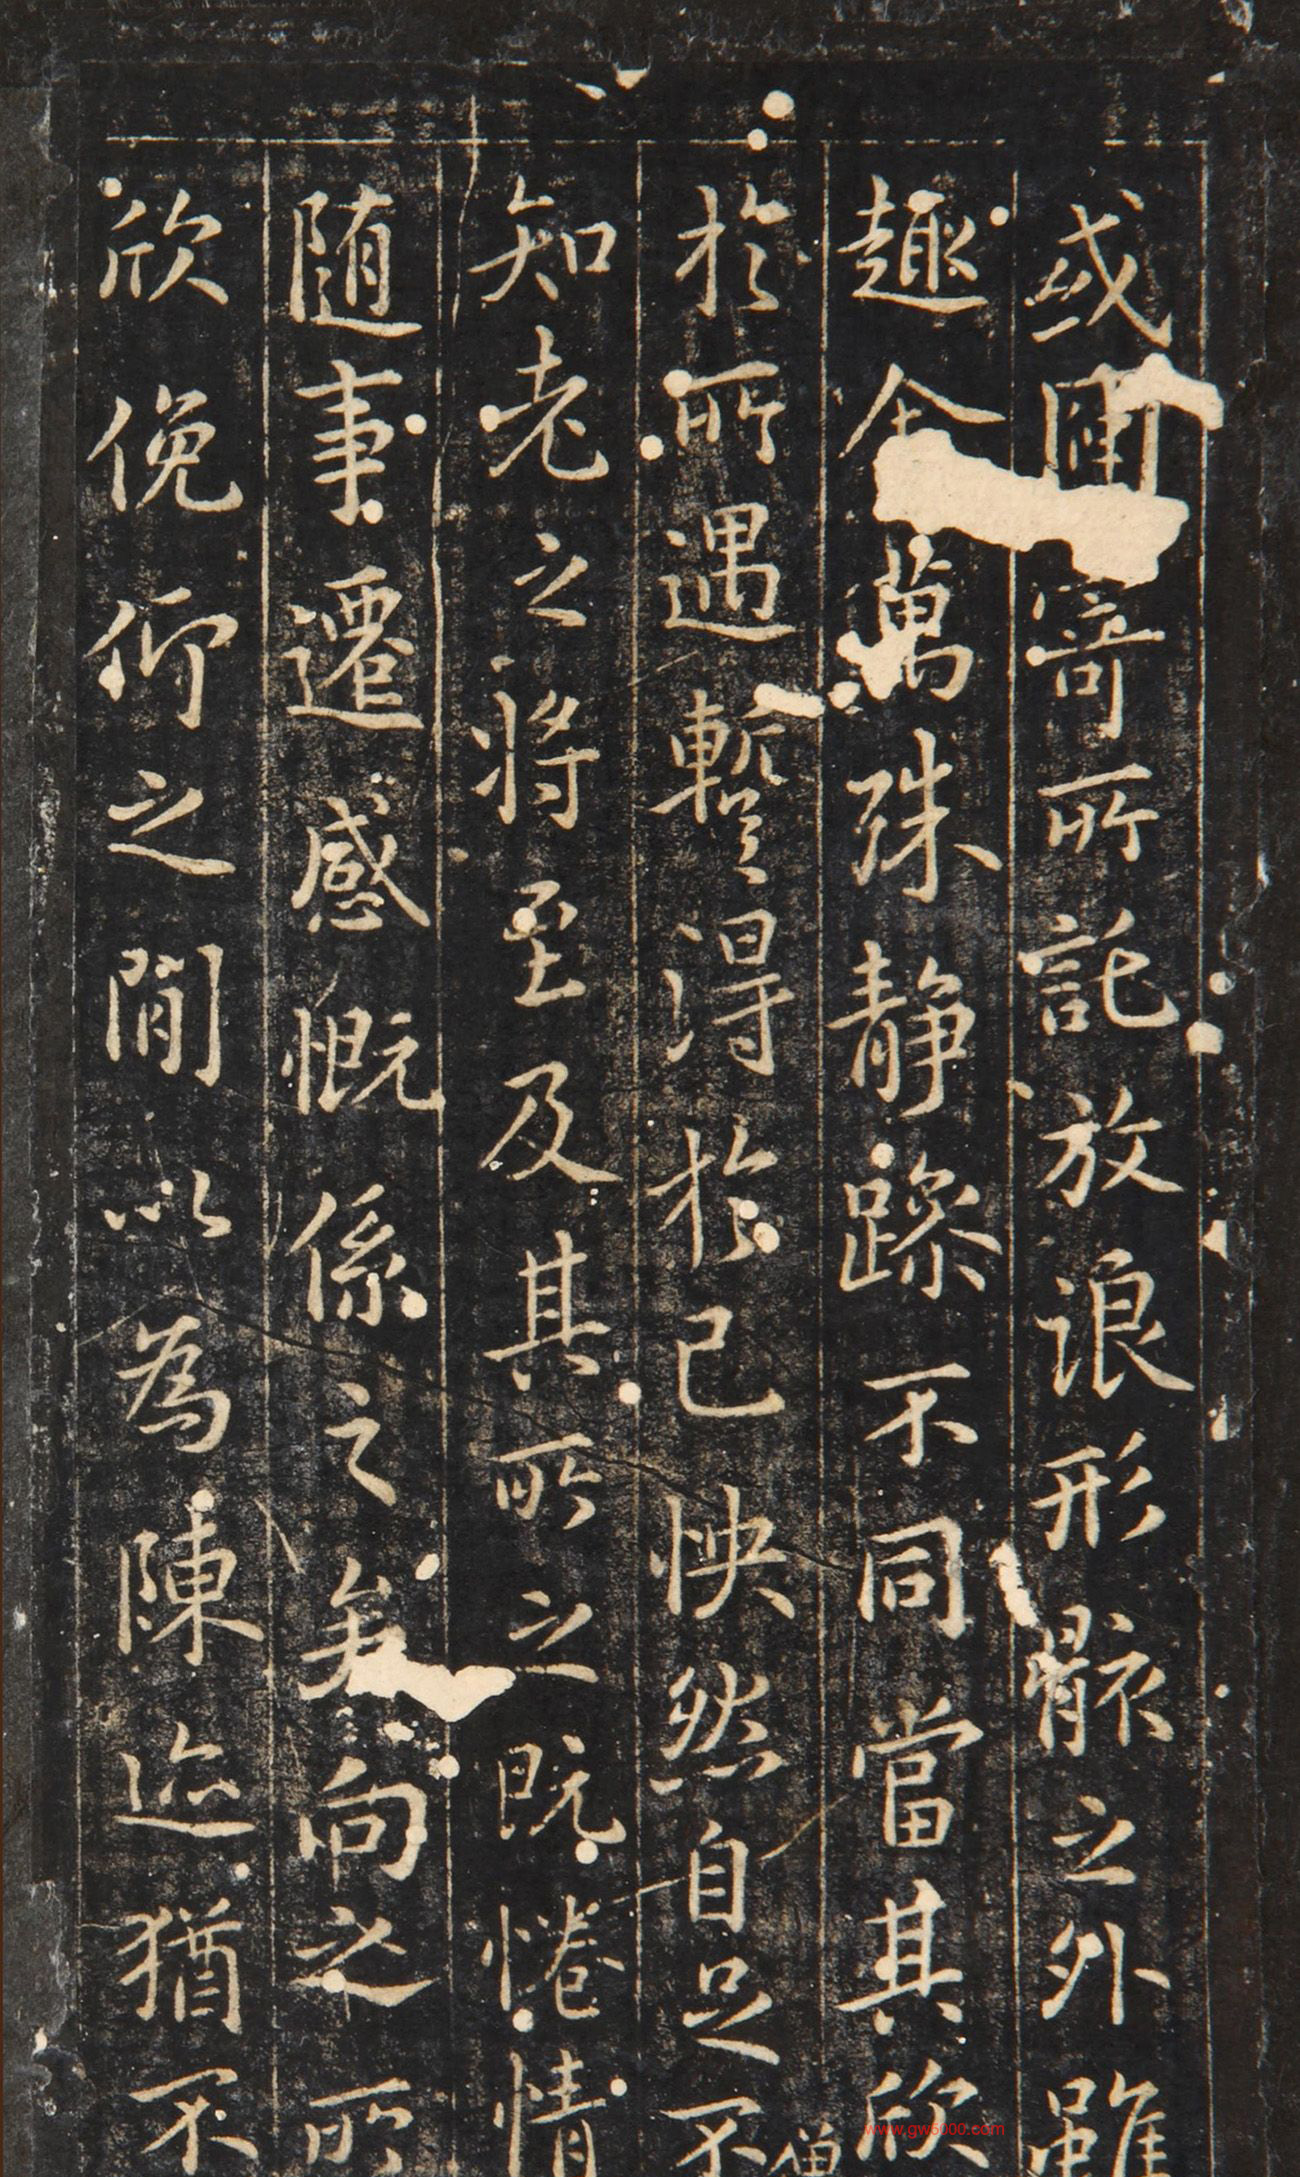 或因寄所託放浪形骸之外雖
趣舍萬殊静躁不同當其欣
於所遇蹔得於己怏然自足不
僧
知老之将至及其所之既惓情
随事遷感慨係之矣向之所
欣俛仰之閒以為陳迹猶不
www.gw5000.com